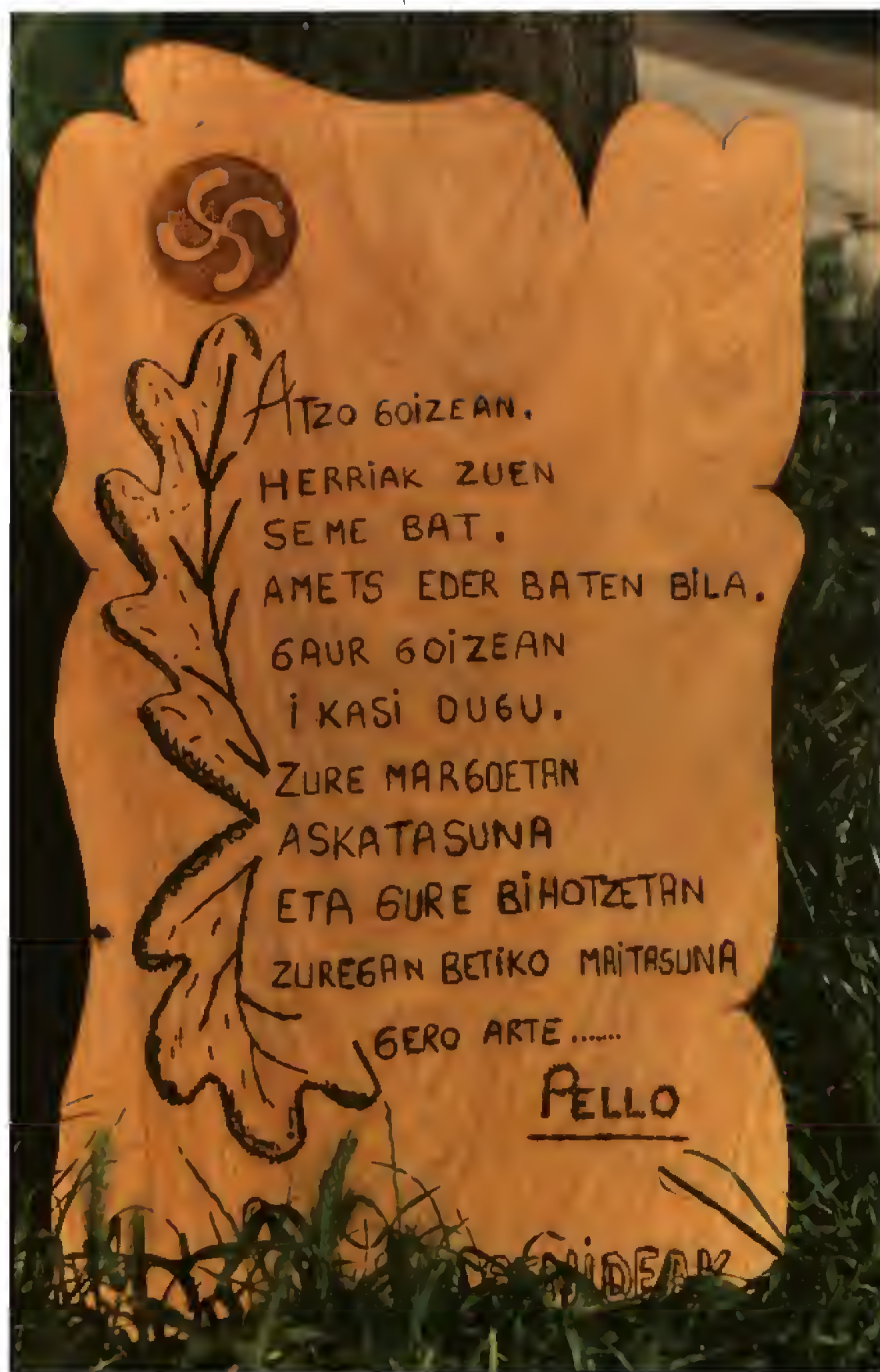 ATZO GOIZEAN.
HERRIAK ZUEN
SEME BAT.
AMETS EDER BATEN BILA.
GAUR GOIZEAN
IKASI DUGU.
ZURE MARGOETAN
ASKATASUNA
ETA GURE BIHOTZETAN
ZUREGAN BETIKO MAITASUNA
GERO ARTE......
PELLO